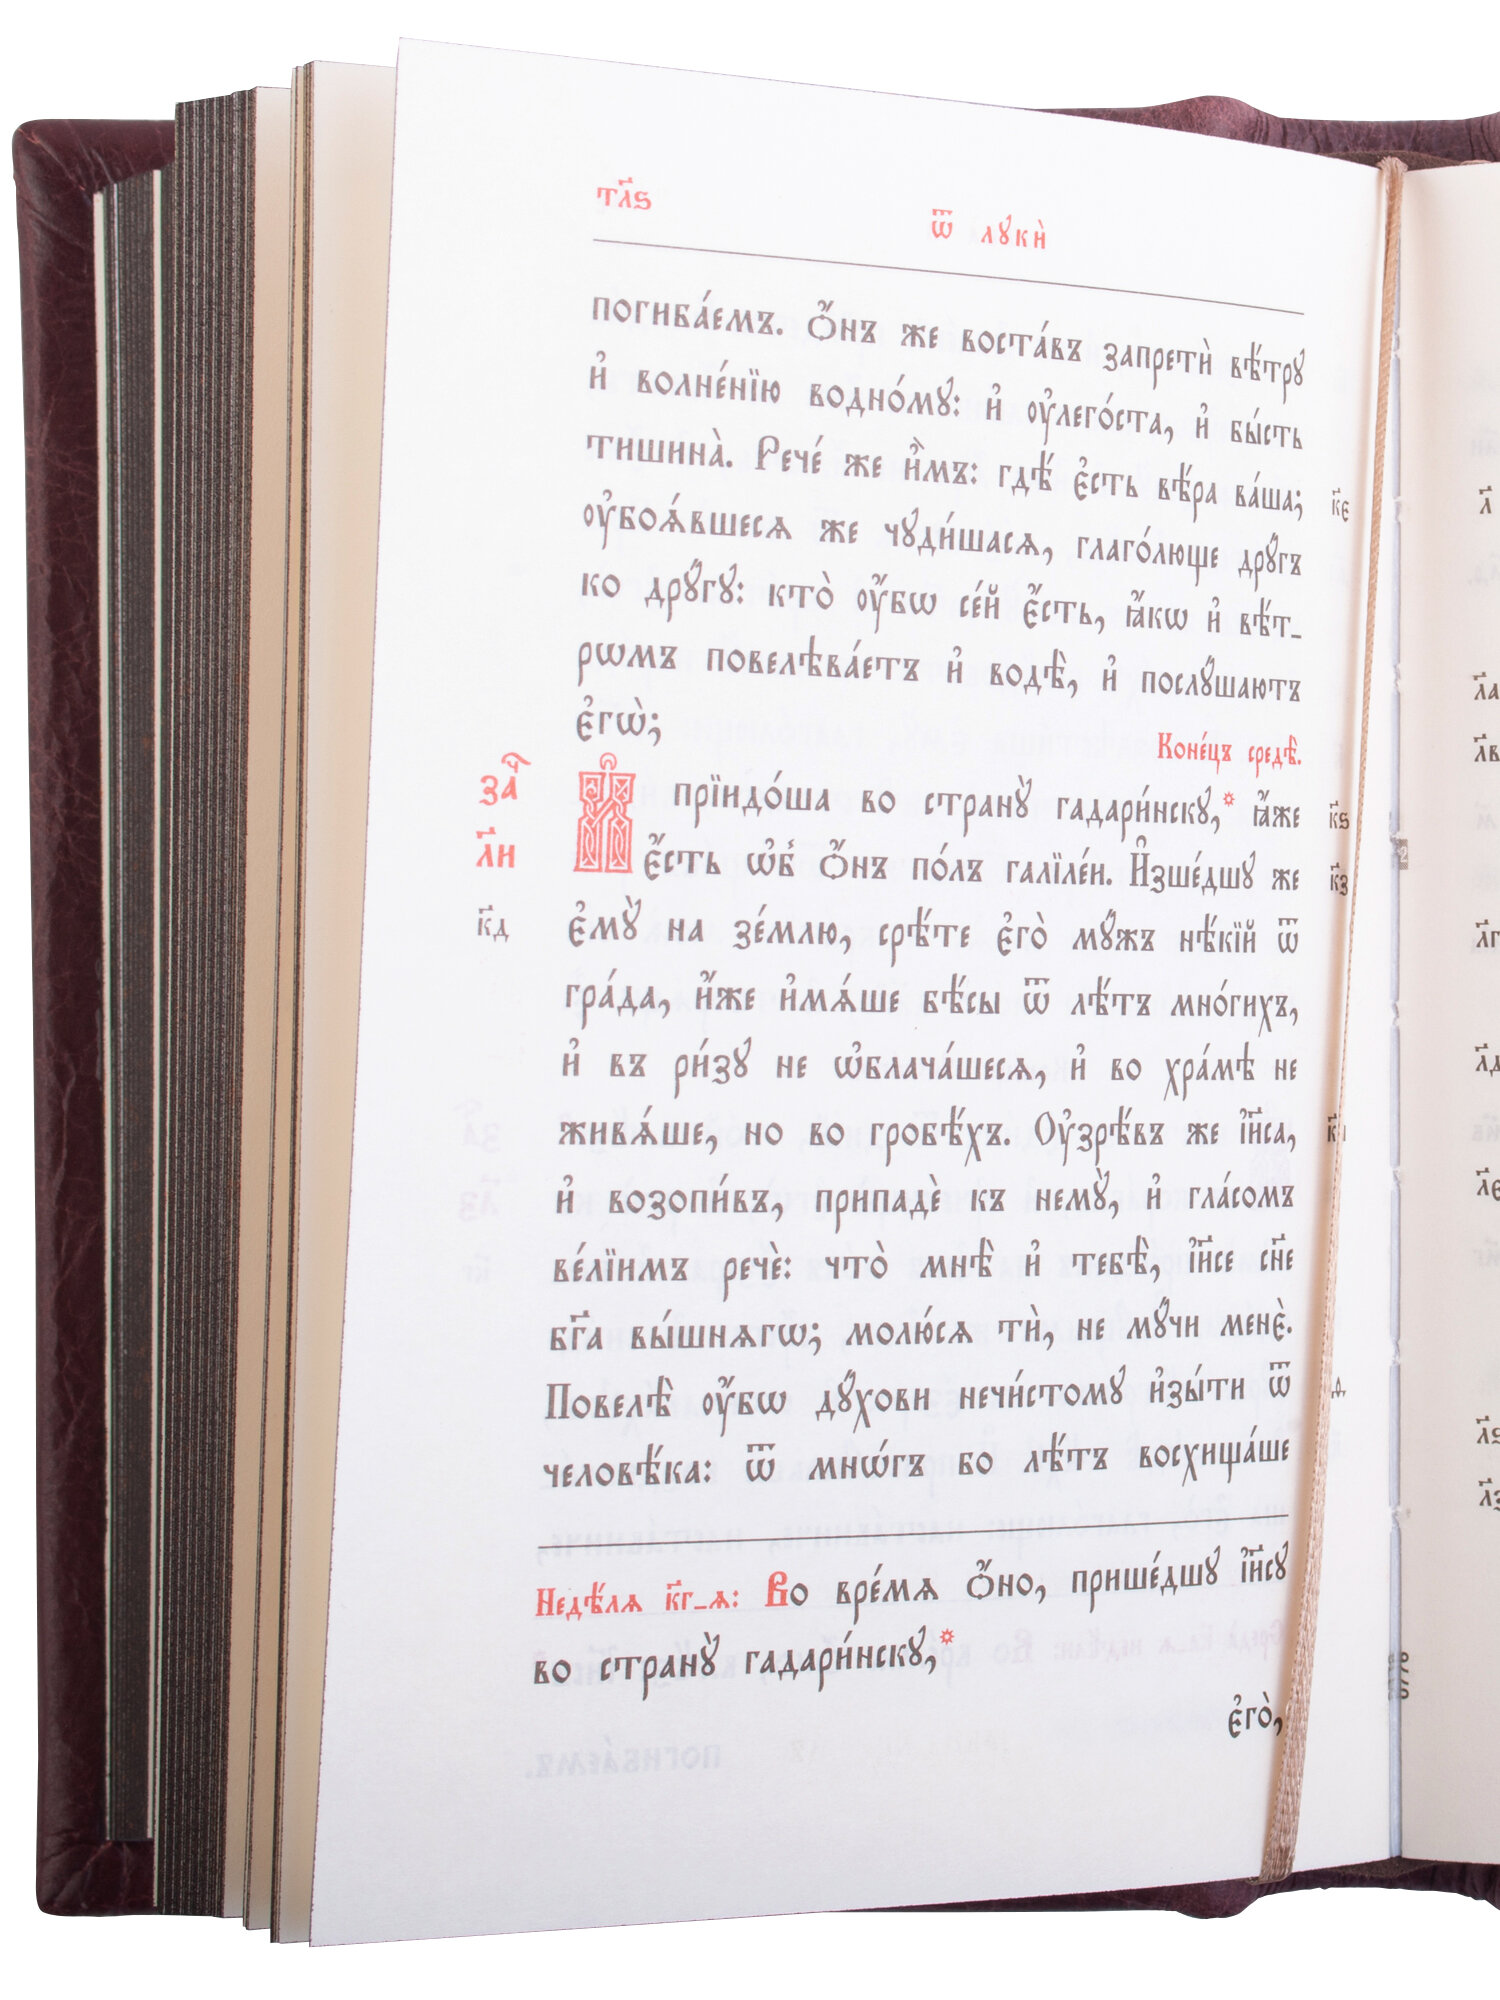 тл҃ѕ
ѿ лꙋкѝ
погиба́емъ. Ѻ҆́нъ же воста́въ запретѝ вѣ́трꙋ
и҆ волне́нїю водно́мꙋ: и҆ ᲂу҆лего́ста, и҆ бы́сть
тишина̀. Рече́ же и҆̀мъ: гдѣ́ є҆сть вѣ́ра ва́ша;
к҃є
ᲂу҆боѧ́вшесѧ же чꙋди́шасѧ, глаго́люще дрꙋ́гъ
ко дрꙋ́гꙋ: кто̀ ᲂу҆́бѡ се́й є҆́сть, ꙗ҆́кѡ и҆ вѣ́т_
рѡмъ повелѣва́етъ и҆ водѣ̀, и҆ послꙋ́шаютъ
є҆гѡ̀;
Коне́цъ средѣ̀.
за ч
л҃и
И҆ прїидо́ша во странꙋ̀ гадари́нскꙋ,* ꙗ҆́же
к҃ѕ
є҆́сть ѡ҆б̾ ѻ҆́нъ по́лъ галїле́и. И҆зше́дшꙋ же
к҃з
є҆мꙋ̀ на зе́млю, срѣ́те є҆го̀ мꙋ́жъ нѣ́кїй ѿ
к҃д
гра́да, и҆́же и҆мѧ́ше бѣ́сы ѿ лѣ́тъ мно́гихъ,
и҆ въ ри́зꙋ не ѡ҆блача́шесѧ, и҆ во хра́мѣ не
живѧ́ше, но во гробѣ́хъ. Оу҆зрѣ́въ же і҆и҃са,
и҆ возопи́въ, припадѐ къ немꙋ̀, и҆ гла́сом
ве́лїимъ речѐ: что̀ мнѣ̀ и҆ тебѣ̀, і҆и҃се сн҃е
бг҃а вы́шнѧгѡ; молю́сѧ тѝ, не мꙋ́чи менѐ.
Повелѣ̀ ᲂу҆́бѡ дꙋ́хови нечи́стомꙋ и҆зы́ти ѿ
человѣ́ка: ѿ мнѡ́гъ бо лѣ́тъ восхища́ше
Недѣ́лѧ к҃г_ѧ: Во вре́мѧ ѻ҆́но, прише́дшꙋ і҆и҃сꙋ
во странꙋ̀ гадари́нскꙋ,*
є҆го̀,
л҃
л҃а
л҃в
л҃г
л҃д
л҃є
л҃ѕ
л҃з